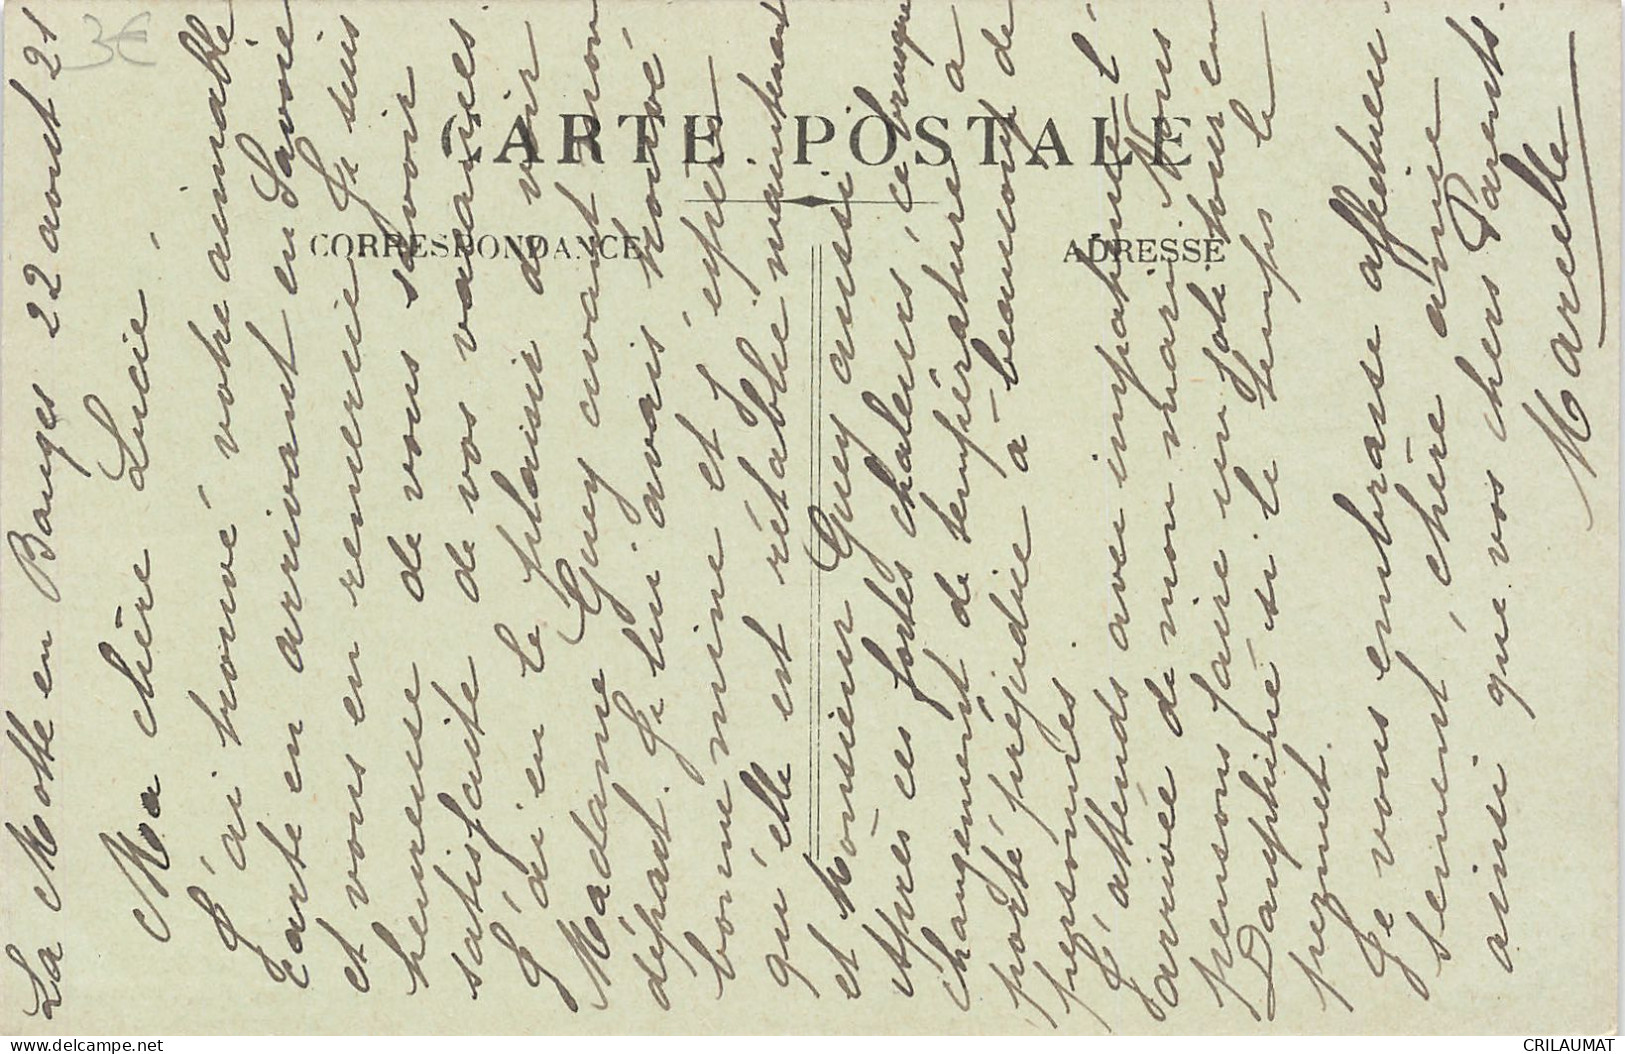 3€
CARTE POSTALE
CORRESPONDANCE
ADRESSE
La Motte en Bauges 22 aout 21
Ma chère Lucie.
J'ai trouvé votre aimable
carte en arrivant en Savoie
et vous en remercie. Je suis
heureuse de vous savoir
satisfaite de vos vacances.
J'ai eu le plaisir de voir
Madame Guey avant mon
départ. Je lui avais trouvé
bonne mine et j'espère
qu'elle est rétablie maintenant
et Monsieur Guey aussi.
Après ces fortes chaleurs ce brusque
changement de température a
porté préjudice à beaucoup de
personnes.
J'attends avec impatience l'
arrivée de mon mari. Nous
pensons faire un joli tour en
Dauphiné si le temps le
permet.
Je vous embrasse affectueu-
sement, chère amie
ainsi que vos chers Parents.
Marcelle
CRILAUMAT